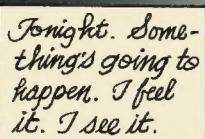 Tonight. Some-
thing's going to
happen. I feel
it. I see it.